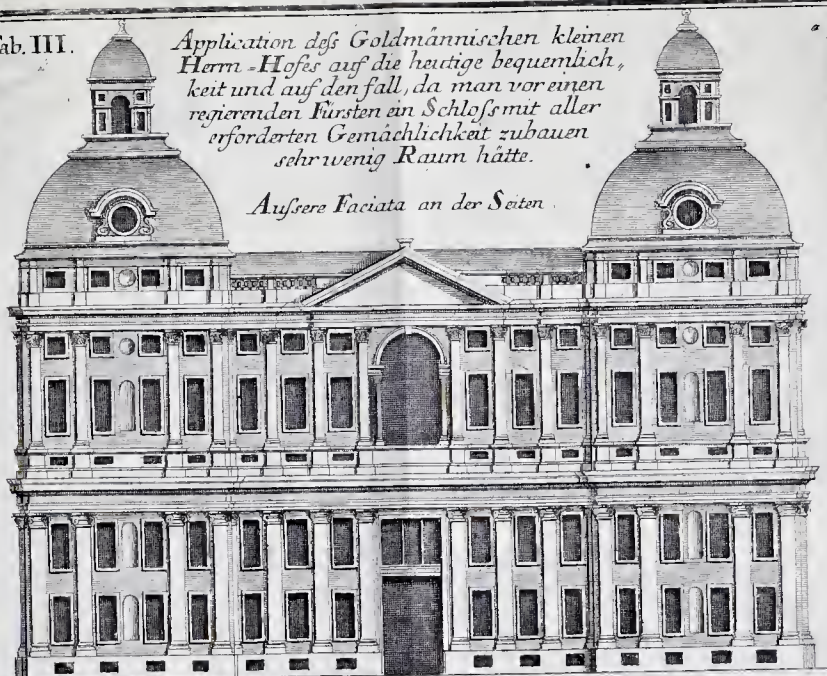 ab. III.
a
Application deſs Goldmännischen kleinen
Herrn-Hofes auf die heutige bequemlich,,
keit und auf den fall, da man vor einen
regierenden Fürsten ein Schloſs mit aller
erforderten Gemächlichkeit zubauen
sehr wenig Raum hätte.
Auſsere Faciata an der Seiten.